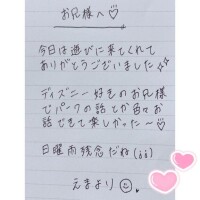 お兄様へ♡
今日は遊びに来てくれて
ありがとうございました✨
ディズニー好きのお兄様
でパークの話とか色々お
話できて楽しかった〜♡
日曜雨残念だね(;;)
えまより☺.